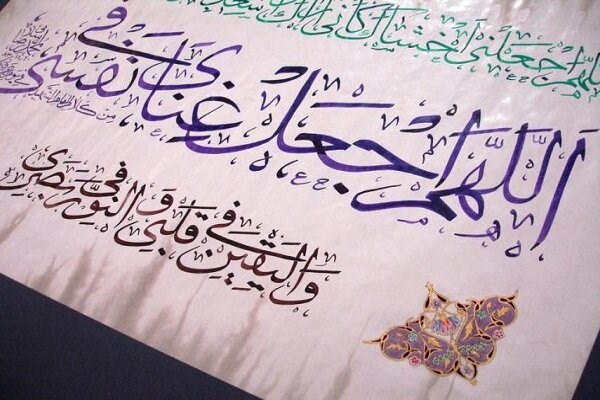 اللهم اجعلني اخشاك كاني اراك
اَللّهُمَّ اجْعَلْ غِنايَ في نَفْسي
وَالْيَقينَ في قَلْبي وَ النُّورَ في بَصَري